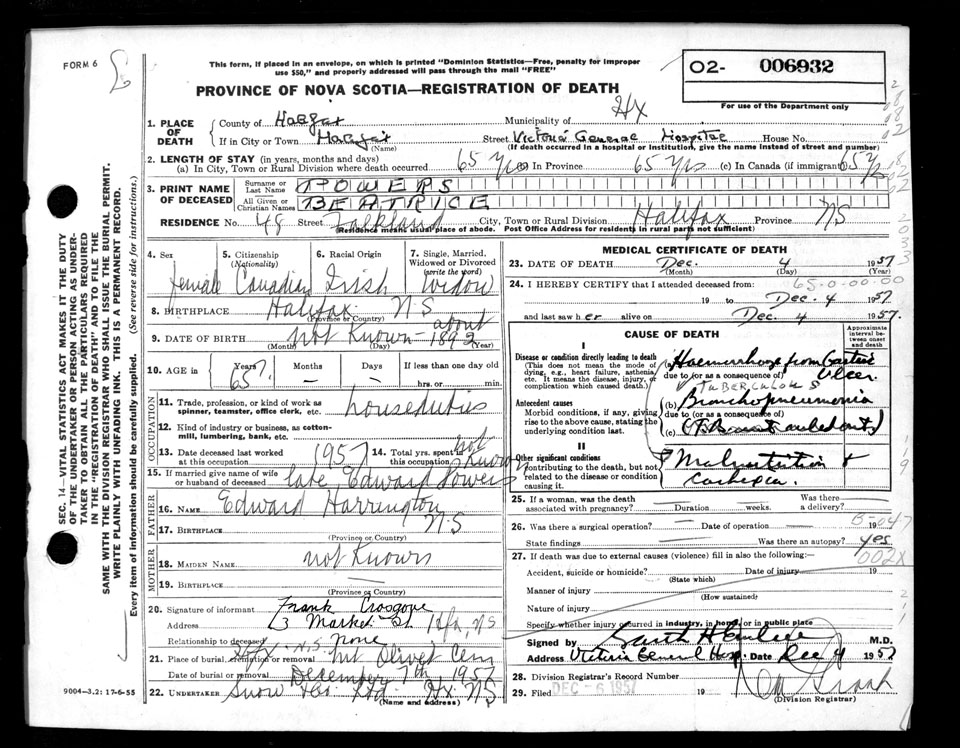 FORM 6
This form, if placed in an envelope, on which is printed "Dominion Statistics—Free, penalty for improper
use $50," and properly addressed will pass through the mail "FREE"
O2- 006932
For use of the Department only
PROVINCE OF NOVA SCOTIA—REGISTRATION OF DEATH
Hx
1. PLACE OF DEATH County of Halifax Municipality of
If in City or Town Halifax (Name) Street Victoria General Hospital House No.
(If death occurred in a hospital or institution, give the name instead of street and number)
2. LENGTH OF STAY (in years, months and days)
(a) In City, Town or Rural Division where death occurred 65 yrs (b) In Province 65 yrs (c) In Canada (if immigrant) 65 yrs
3. PRINT NAME OF DECEASED Surname or Last Name POWERS
All Given or Christian Names BEATRICE
RESIDENCE No. 48 Street Falkland City, Town or Rural Division Halifax Province NS
(Residence means usual place of abode. Post Office Address for residents in rural parts not sufficient)
4. Sex 5. Citizenship (Nationality) 6. Racial Origin 7. Single, Married, Widowed or Divorced (write the word)
female Canadian Irish Widow
8. BIRTHPLACE Halifax NS
(Province or Country)
9. DATE OF BIRTH not Known about 1892
(Month) (Day) (Year)
10. AGE in Years Months Days If less than one day old
65 — — hrs. or min.
OCCUPATION
11. Trade, profession, or kind of work as spinner, teamster, office clerk, etc. houseduties
12. Kind of industry or business, as cotton-mill, lumbering, bank, etc.
13. Date deceased last worked at this occupation 1957 14. Total yrs. spent in this occupation not Known
15. If married give name of wife or husband of deceased late, Edward Powers
FATHER
16. NAME Edward Harrington
17. BIRTHPLACE NS
(Province or Country)
MOTHER
18. MAIDEN NAME not Known
19. BIRTHPLACE —
(Province or Country)
20. Signature of informant Frank Crosgove
Address 3 Market St. Hfx, NS
Relationship to deceased None
21. Place of burial, cremation or removal Hfx. N.S. Mt Olivet Cem
Date of burial or removal December 7th 1957
22. UNDERTAKER Snow & Co. Ltd Hx NS
(Name and address)
9004-3.2: 17-6-55
MEDICAL CERTIFICATE OF DEATH
23. DATE OF DEATH Dec. 4 1957
(Month) (Day) (Year)
65-0-00-00
24. I HEREBY CERTIFY that I attended deceased from:
19 to Dec. 4 1957
and last saw her alive on Dec. 4 1957.
CAUSE OF DEATH
Approximate interval between onset and death
I
Disease or condition directly leading to death
(This does not mean the mode of dying, e.g., heart failure, asthenia, etc. It means the disease, injury, or complication which caused death.)
(a) Haemorrhage from Gastric Ulcer
due to (or as a consequence of)
TUBERCULOUS
Antecedent causes
Morbid conditions, if any, giving rise to the above cause, stating the underlying condition last.
(b) Bronchopneumonia
due to (or as a consequence of)
(c)
II
Other significant conditions
contributing to the death, but not related to the disease or condition causing it.
Malnutrition +
Cachexia.
25. If a woman, was the death associated with pregnancy? Duration weeks. Was there a delivery?
26. Was there a surgical operation? — Date of operation 19
State findings — Was there an autopsy? yes
002X
27. If death was due to external causes (violence) fill in also the following:—
Accident, suicide or homicide? Date of injury 19
(State which)
Manner of injury
(How sustained)
Nature of injury
Specify whether injury occurred in industry, in home or in public place
Signed by M.D.
Address Victoria General Hosp. Date Dec 4 1957
28. Division Registrar's Record Number
29. Filed DEC -6 1957 19
(Division Registrar)
SEC. 14—VITAL STATISTICS ACT MAKES IT THE DUTY
OF THE UNDERTAKER OR PERSON ACTING AS UNDER-
TAKER TO OBTAIN ALL THE PARTICULARS REQUIRED
IN THE "REGISTRATION OF DEATH" AND TO FILE THE
SAME WITH THE DIVISION REGISTRAR WHO SHALL ISSUE THE BURIAL PERMIT.
WRITE PLAINLY WITH UNFADING INK. THIS IS A PERMANENT RECORD.
Every item of information should be carefully supplied. (See reverse side for instructions.)